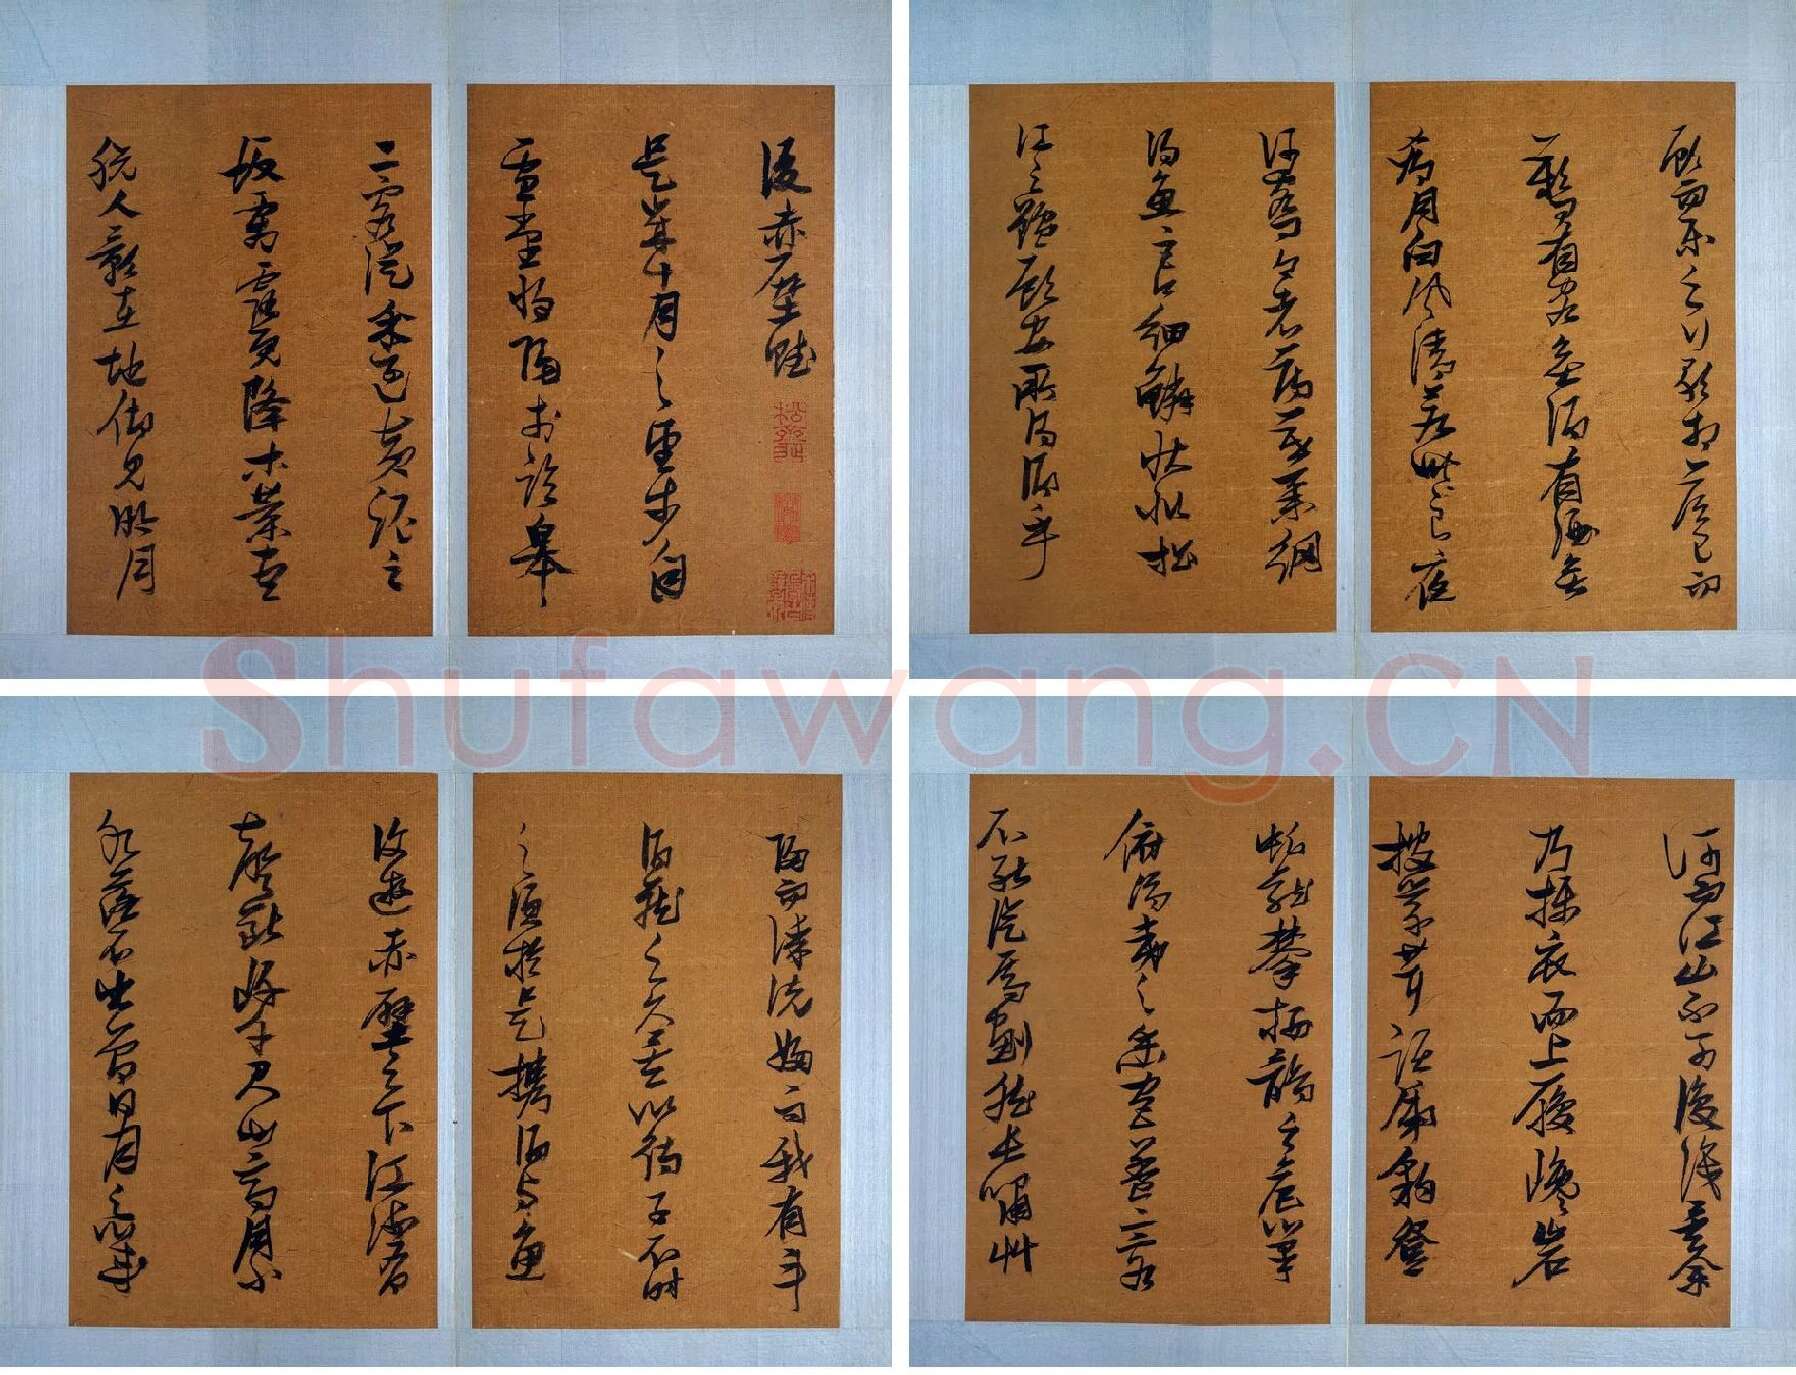 後赤壁賦
是歲十月之望步自
雪堂將歸于臨皋
二客從余過黃泥之
坂霜露既降木葉盡
脫人影在地仰見明月
顧而樂之行歌相答已而
歎曰有客無酒有酒無
肴月白風清若此良夜
何客曰今者薄暮舉網
得魚巨口細鱗狀似松
江之鱸顧安所得酒乎
歸而謀諸婦曰我有斗
酒藏之久矣以待子不時
之須於是攜酒與魚
復遊赤壁之下江流有
聲斷岸千尺山高月小
水落石出曾日月之幾
何而江山不可復識矣余
乃攝衣而上履巉岩
披蒙茸踞虎豹登
虬龍攀栖鶻之危巢
俯馮夷之幽宮蓋二客
不能從焉劃然長嘯艸
Shufawang.CN